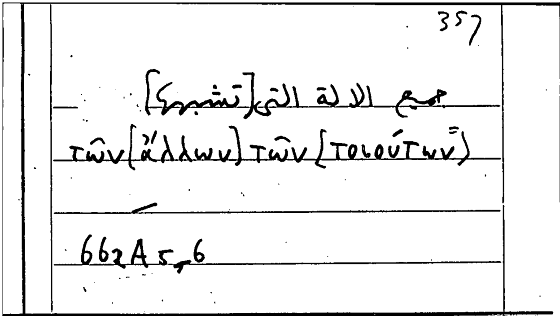 357
جميع الالة التى
τῶν [ἄλλων] τῶν [τοιούτων=]
662A 5,6